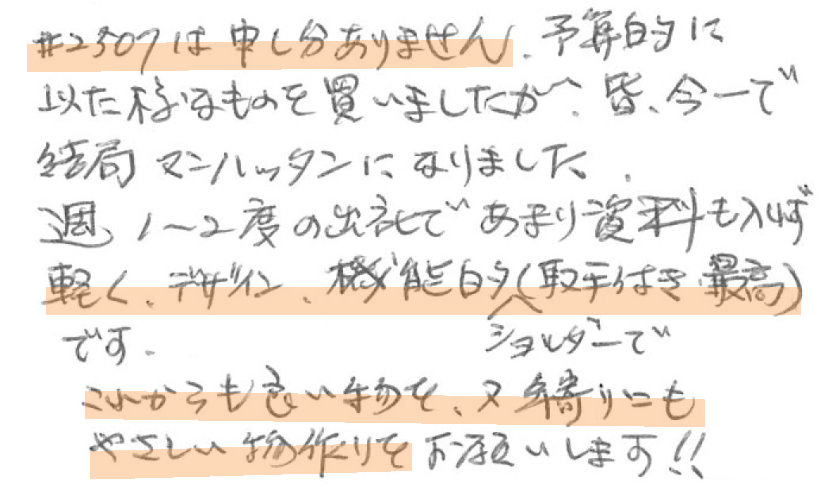 #2507は申し分ありません。予算的に
似た様なものを買いましたが、皆、今一で
結局マンハッタンになりました。
週1〜2度の出社であまり資料も入れず
軽く、デザイン、機能的(取手付き最高)
ショルダーで
です。
これからも良い物を、又
やさしい物作りをお願いします!!